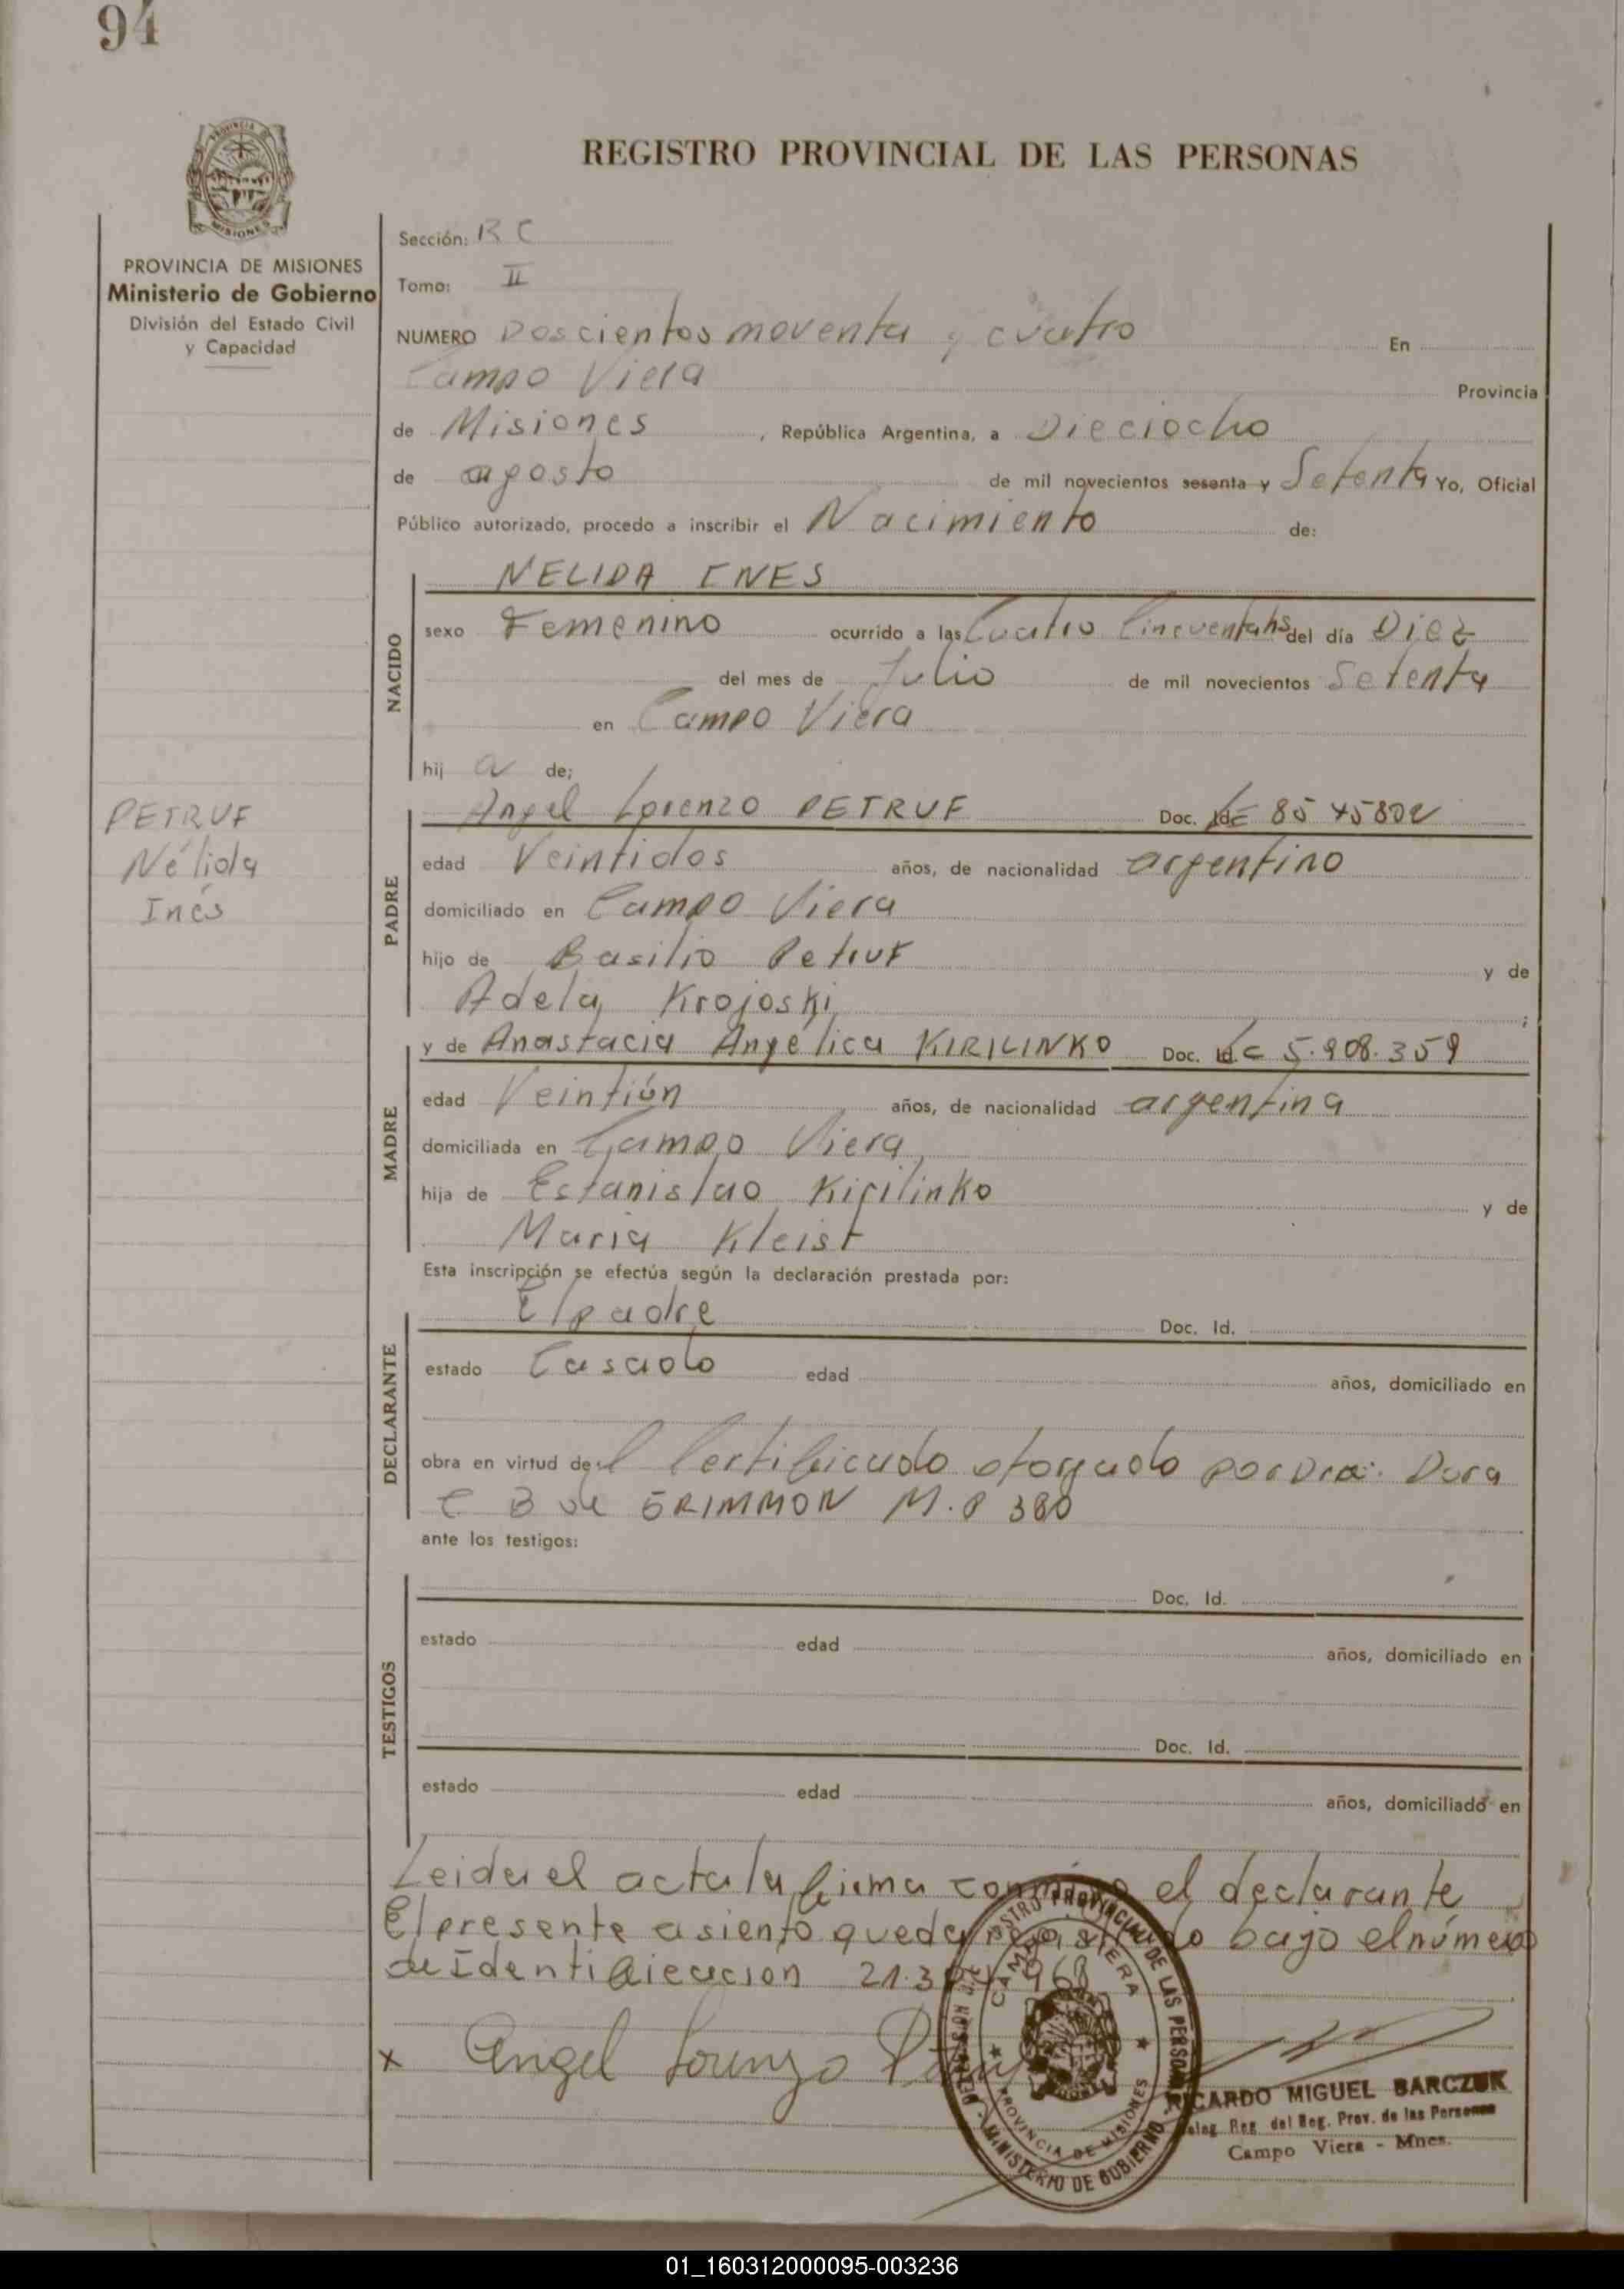 94
REGISTRO PROVINCIAL DE LAS PERSONAS
PROVINCIA DE MISIONES
Ministerio de Gobierno
División del Estado Civil
y Capacidad
Sección: R C
Tomo: II
NUMERO Doscientos noventa y cuatro En
Campo Viera Provincia
de Misiones, República Argentina, a Dieciocho
de agosto de mil novecientos sesenta y Setenta Yo, Oficial
Público autorizado, procedo a inscribir el Nacimiento de:
NACIDO
NELIDA INES
sexo Femenino ocurrido a las Cuatro Cincuenta hs del día Diez
del mes de Julio de mil novecientos Setenta
en Campo Viera
hij a de;
PETRUF
Nélida
Inés
PADRE
Angel Lorenzo PETRUF Doc. LE
edad Veintidos años, de nacionalidad argentino
domiciliado en Campo Viera
hijo de Basilio Petruf y de
Adela Krojoski;
MADRE
y de Anastacia Angélica KIRILINKO Doc. Id. LC 5.908.359
edad Veintiún años, de nacionalidad argentina
domiciliada en Campo Viera
hija de Estanislao Kirilinko y de
Maria Kleist
Esta inscripción se efectúa según la declaración prestada por:
DECLARANTE
El padre Doc. Id.
estado Casado edad años, domiciliado en
obra en virtud del Certificado otorgado por Dra. Dora
C B de GRIMMON M.P 380
ante los testigos:
TESTIGOS
Doc. Id.
estado edad años, domiciliado en
Doc. Id.
estado edad años, domiciliado en
Leida el acta la firma conmigo el declarante
El presente asiento queda registrado bajo el número
de Identificacion 21.3 968
x Angel Lorenzo
REGISTRO PROVINCIAL DE LAS PERSONAS
MINISTERIO DE GOBIERNO
CAMPO VIERA
PROVINCIA DE MISIONES
RICARDO MIGUEL BARCZUK
Deleg. Reg. del Reg. Prov. de las Personas
Campo Viera - Mnes.
01_160312000095-003236